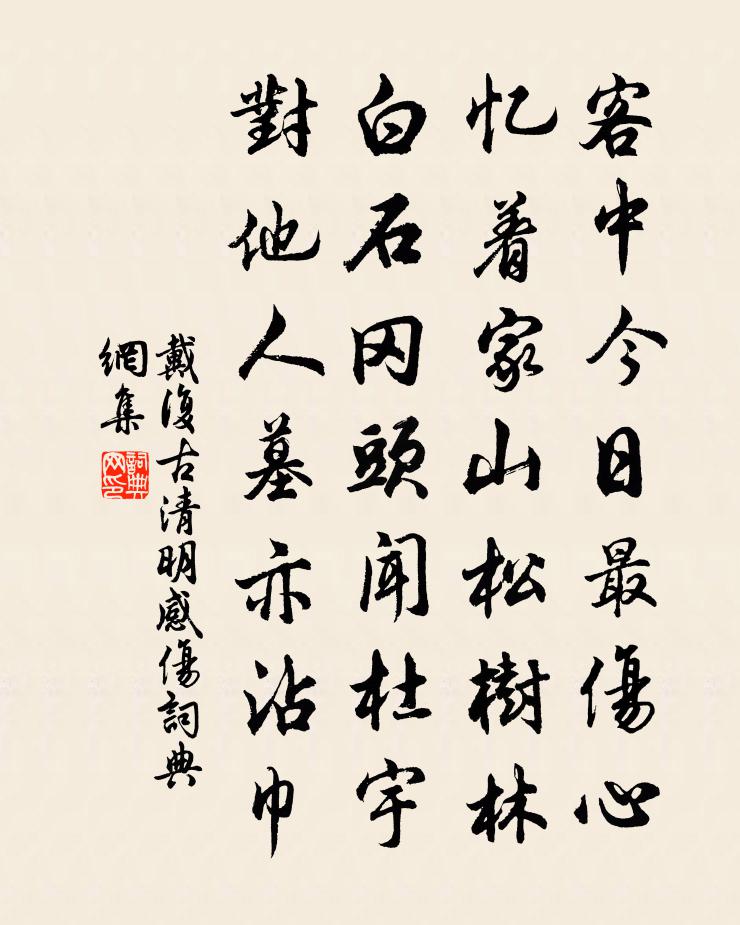 客中今日最傷心
忆着家山松樹林
白石冈頭聞杜宇
對他人墓亦沾巾
戴復古清明感傷詞典
網集
詞典
网印